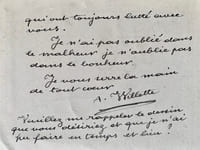 qui ont toujours lutté avec
vous.
Je n'ai pas oublié dans
le malheur je n'oublie pas
dans le bonheur.
Je vous serre la main
de tout cœur
A. Willette
Veuillez me rappeler le dessin
que vous désiriez et que je n'ai
pu faire en temps et lieu ?